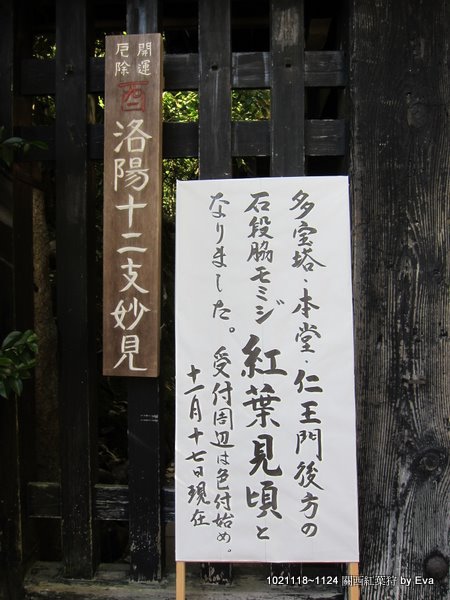 開運
厄除
酉
洛陽十二支妙見
多宝塔・本堂仁王門後方の
石段脇モミジ紅葉見頃と
なりました。受付周辺は色付始め。
十一月十七日現在
1021118~1124 關西紅葉狩 by Eva